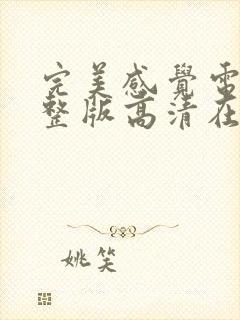 完美感覺電
整版高清在
姚笑